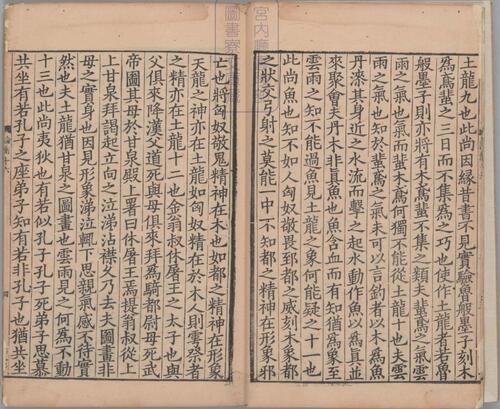 土龍九也此尚因緣昔書不見實驗魯般墨子刻木
為鳶蜚之三日而不集為之巧也使作土龍者若魯
般墨子則亦將有木鳶蜚不集之類夫蜚鳶之氣雲
雨之氣也氣而蜚木鳶何獨不能從土龍十也夫雲
雨之氣也知於蜚鳶之氣未可以言釣者以木為魚
丹漆其身近之水流而擊之起水動作魚以為真並
來聚會夫丹木非真魚也魚含血而有知猶為象至
雲雨之知不能過魚見土龍之象何能疑之十一也
此尚魚也知不如人匈奴敬畏郅都之威刻木象都
之狀交弓射之莫能一中不知都之精神在形象邪
亡也將匈奴敬鬼精神在木也如都之精神在形象
天龍之神亦在土龍如匈奴精在於木人則雩祭者
之精亦在土龍十二也金翁叔休屠王之太子也與
父俱來降漢父道死與母俱來拜為騎都尉母死武
帝圖其母於甘泉殿上署曰休屠王焉提翁叔從上
上甘泉拜謁起立向之泣涕沾襟久乃去夫圖畫非
母之實身也因見形象涕泣輒下思親氣感不待實
然也夫土龍猶甘泉之圖畫也雲雨見之何為不動
十三也此尚夷狄也有若似孔子孔子死弟子思慕
共坐有若孔子之座弟子知有若非孔子也猶共坐
宮内廳
圖書寮